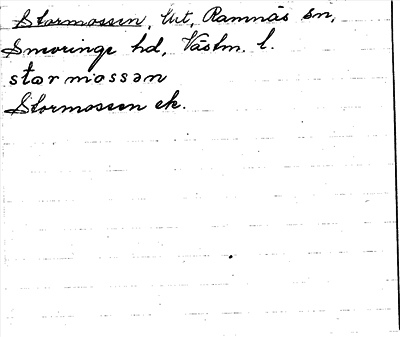 Stormossen, Utt, Ramnäs sn,
Snevringe hd, Västm. l.
stormossən
Stormossen ek.